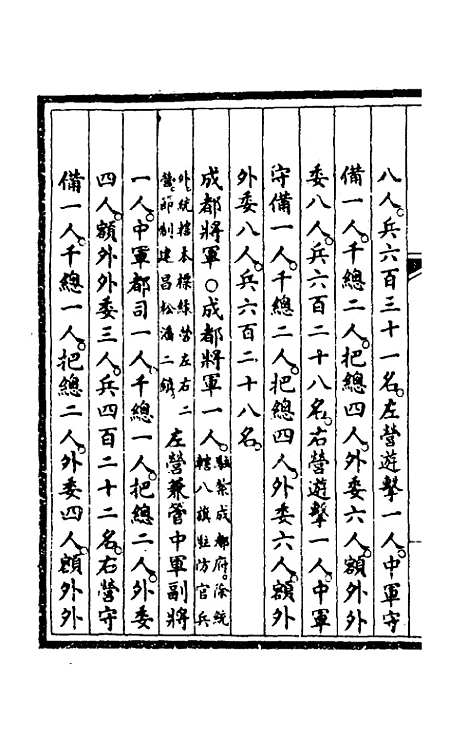 八人兵六百三十一名左營遊擊一人中軍守
備一人千總二人把總四人外委六人額外外
委八人兵六百二十八名右營遊擊一人中軍
守備一人千總二人把總四人外委六人額外
外委八人兵六百二十八名
成都將軍○成都將軍一人駐紮成都府除統轄八旗駐防官兵
外統轄本標綠營左右二營節制建昌松潘二鎮左營兼管中軍副將
一人中軍都司一人千總一人把總二人外委
四人額外外委三人兵四百二十二名右營守
備一人千總一人把總二人外委四人額外外